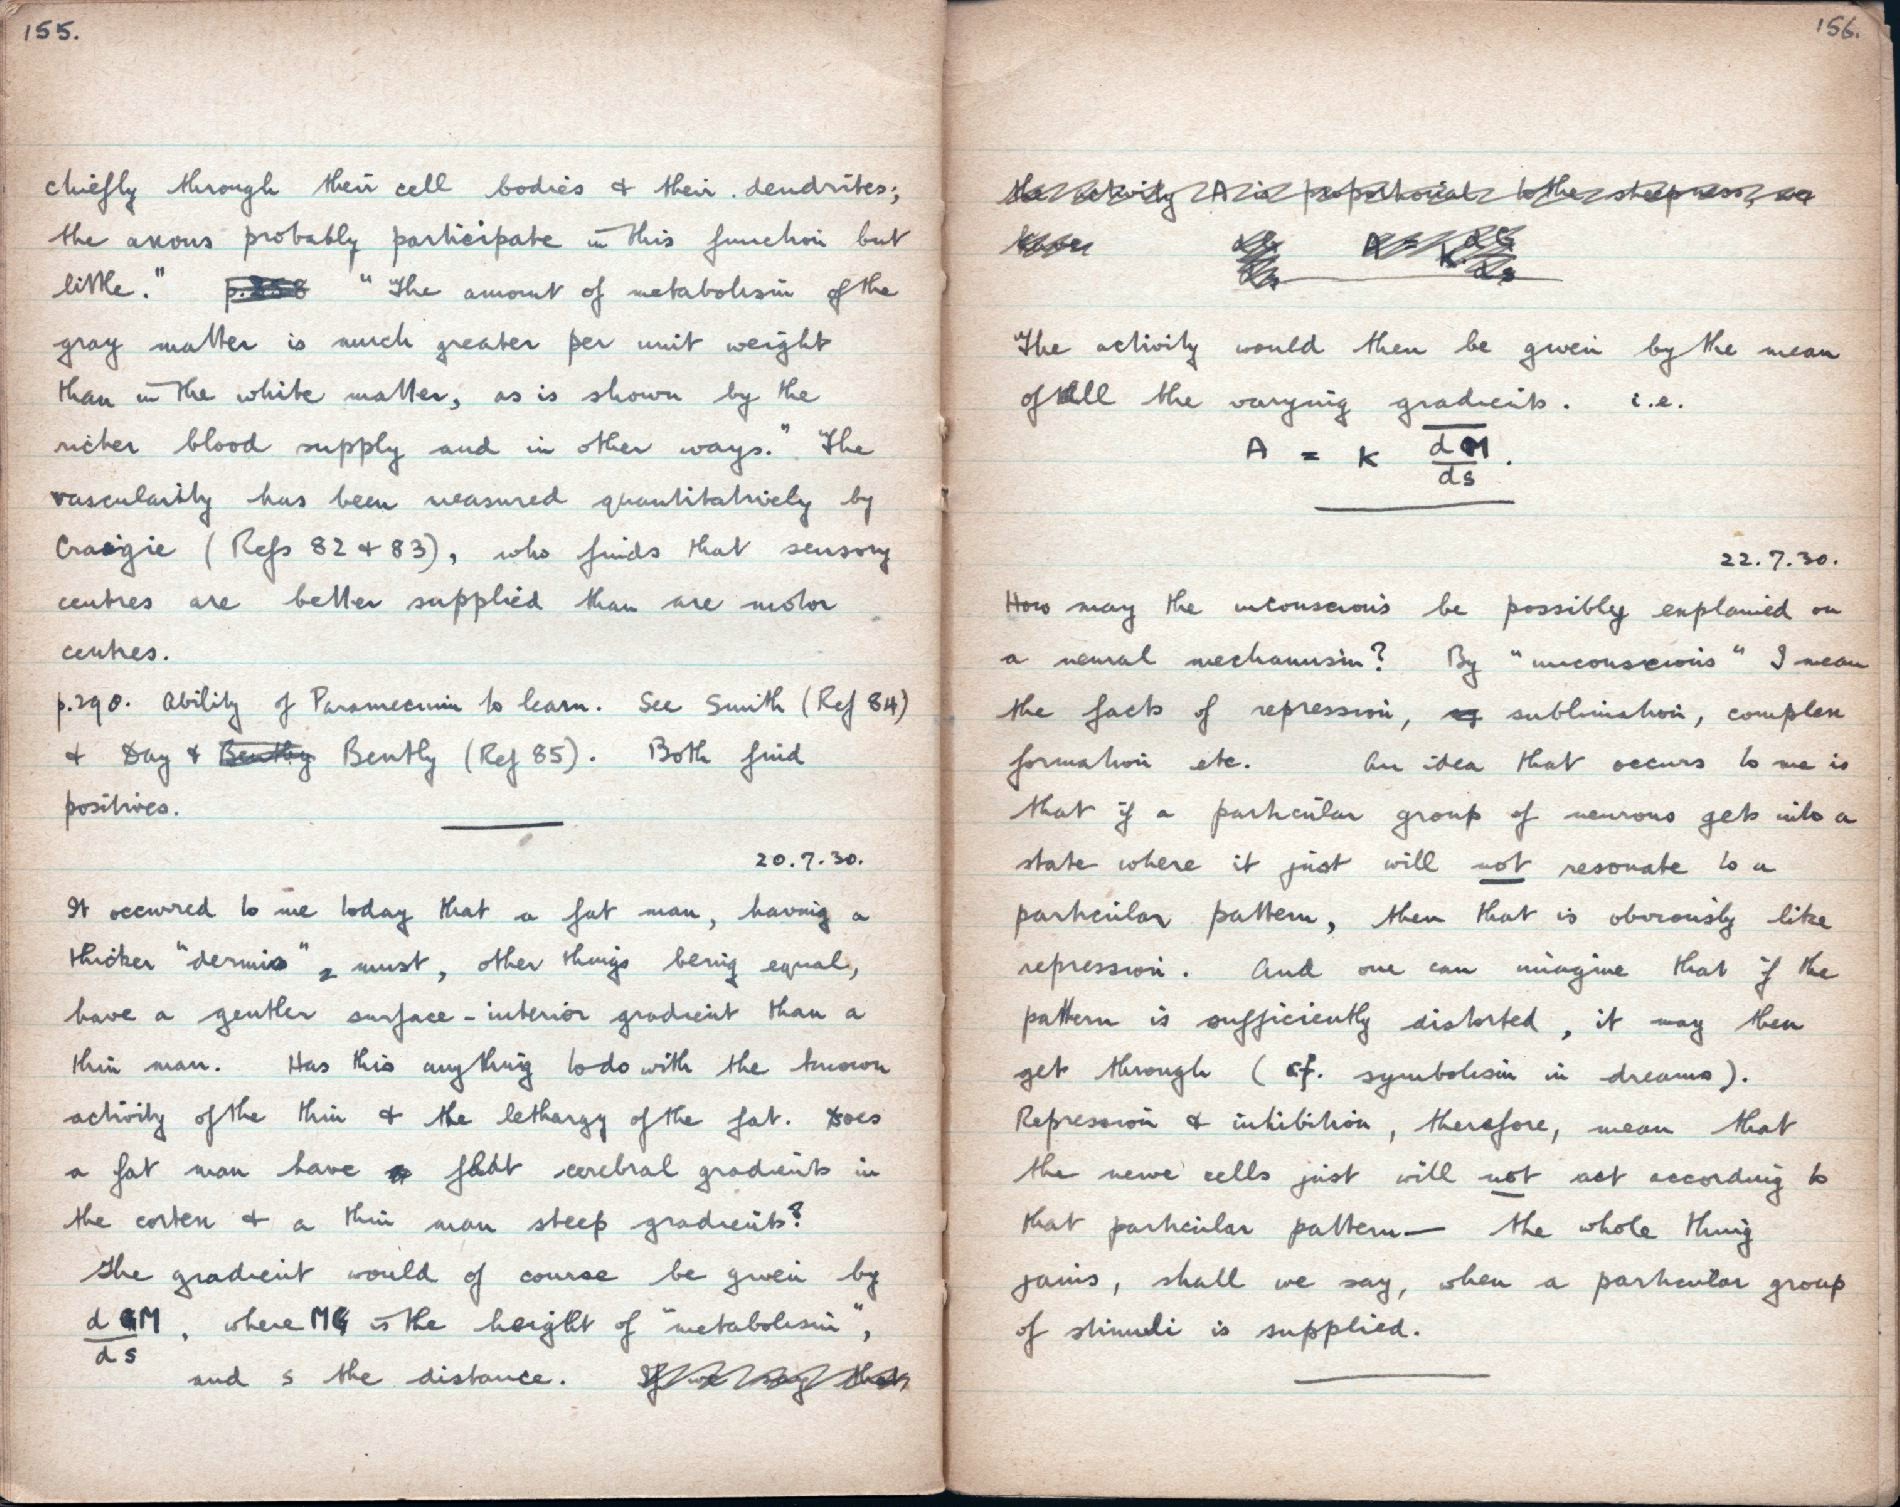 155.
chiefly through their cell bodies & their dendrites;
the axons probably participate in this function but
little." p.258 "The amount of metabolism of the
gray matter is much greater per unit weight
than in the white matter, as is shown by the
richer blood supply and in other ways." The
vascularity has been measured quantitatively by
Craigie (Refs 82 & 83), who finds that sensory
centres are better supplied than are motor
centres.
p.290. Ability of Paramecium to learn. See Smith (Ref 84)
& Day & Bentley Bently (Ref 85). Both find
positives.
20.7.30.
It occurred to me today that a fat man, having a
thicker "dermis", must, other things being equal,
have a gentler surface-interior gradient than a
thin man. Has this anything to do with the known
activity of the thin & the lethargy of the fat. Does
a fat man have flat cerebral gradients in
the cortex & a thin man steep gradients?
The gradient would of course be given by
dM
ds
, where M is the height of "metabolism",
and s the distance. If we say that
156.
the activity A is proportional to the steepness, we
have A = k dG
ds
The activity would then be given by the mean
of all the varying gradients. i.e.
A = K dM
ds.
22.7.30.
How may the unconscious be possibly explained on
a neural mechanism? By "unconscious" I mean
the facts of repression, sublimation, complex
formation etc. An idea that occurs to me is
that if a particular group of neurons gets into a
state where it just will not resonate to a
particular pattern, then that is obviously like
repression. And one can imagine that if the
pattern is sufficiently distorted, it may then
get through (cf. symbolism in dreams).
Repression & inhibition, therefore, mean that
the nerve cells just will not act according to
that particular pattern— the whole thing
jams, shall we say, when a particular group
of stimuli is supplied.